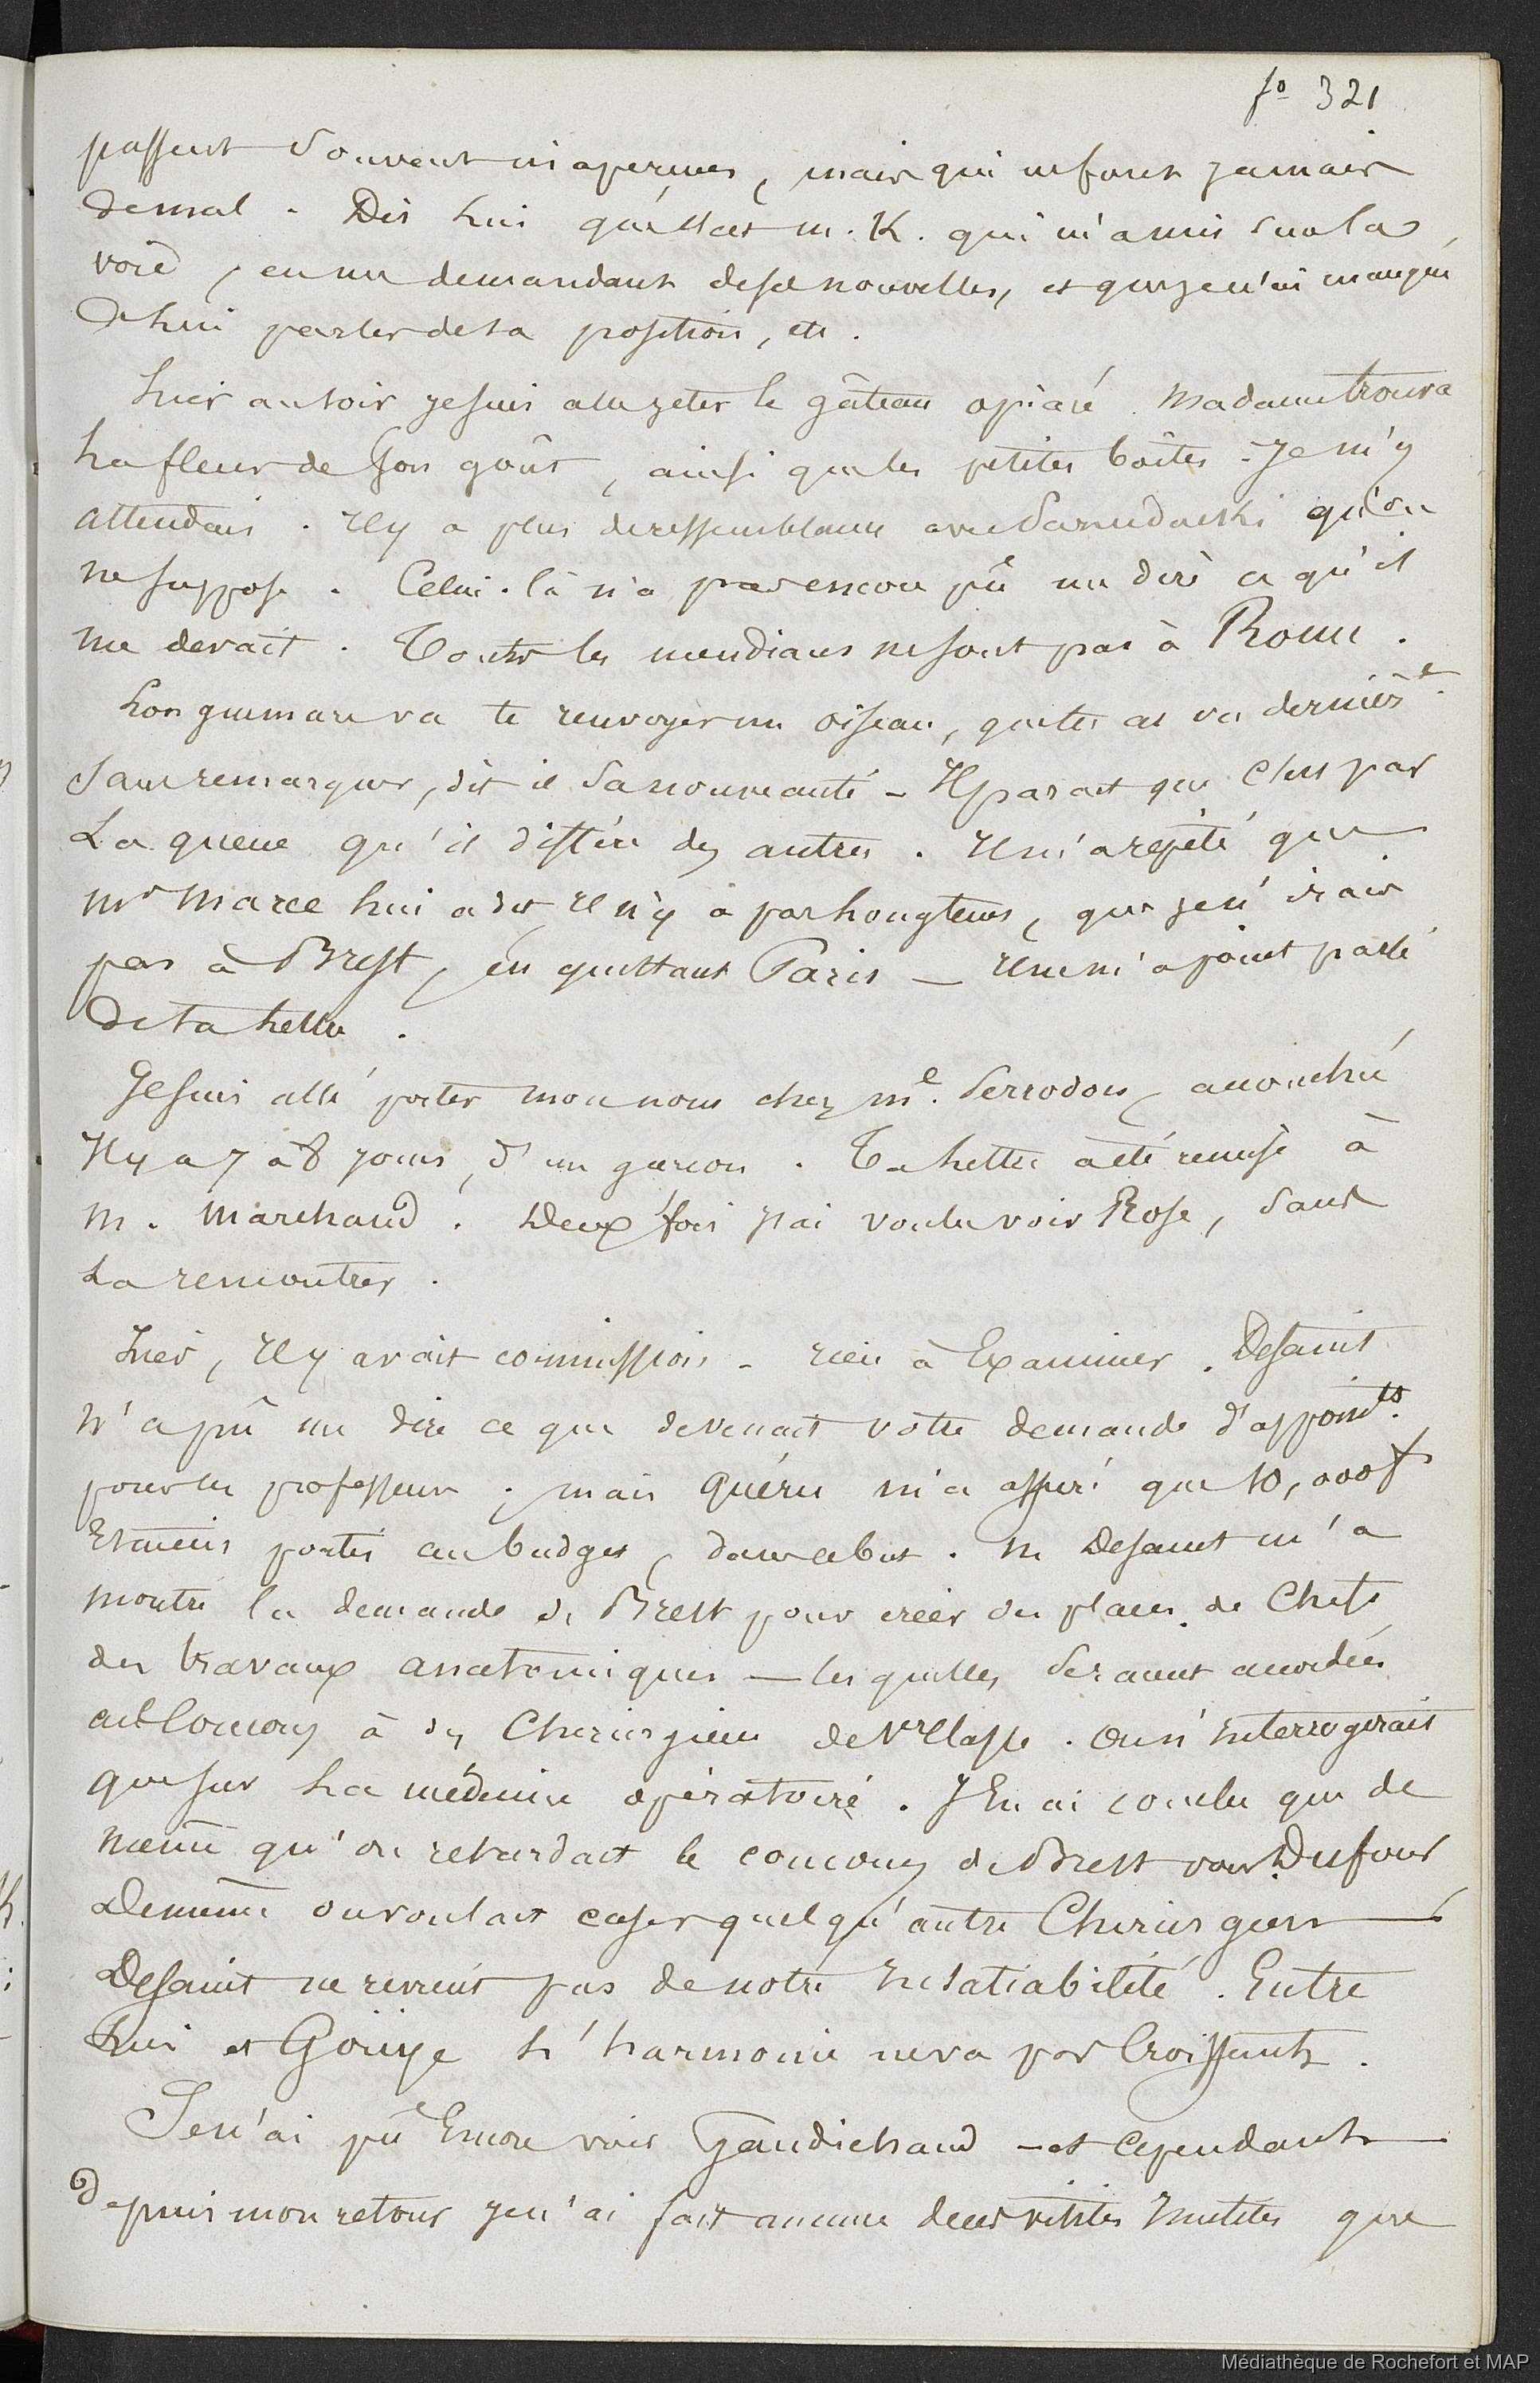 fo 321
passent souvent inaperçues, mais qui ne font jamais
de mal. Dis lui que c'est m. K. qui m'a mis sur la
voie, en me demandant de ses nouvelles, et que je n'ai manqué
de lui parler de sa position, etc.
hier au soir je suis allé jeter le gâteau opiacé. Madame trouva
la fleur de son goût, ainsi que les petites boîtes. Je m'y
attendais. Il y a plus de ressemblance avec qu'on
ne suppose. Celui-là n'a pas encore pû me dire ce qu'il
me devait. Toutes les mendians ne sont pas à Rome.
Longuemare va te renvoyer un oiseau, que tu as vu dernièrt
sans remarquer, dit il sa nouveauté – Il parait que c'est par
La queue qu'il diffère des autres. Il m'a répété que
Mr Marec lui a dit, il n'y a pas longtems, que je n'irais
pas à Brest, en quittant Paris — Il ne m'a point parlé
de ta lettre.
Je suis allé porter mon nom chez me. accouchée
Il y a 7 à 8 jours, d'un garcon. Ta lettre a été remise à
M. Marchand. Deux fois j'ai voulu voir Rose, sans
La rencontrer.
hier, Il y avait commission – rien à Examiner. Desaint
n'a pû me dire ce que devenait votre demande d'appointts.
pour les professeurs; mais Quéru m'a assuré que 10,000f
Etaient portés au budget, dans ce but. M Desaint m'a
montré la demande de Brest pour créer des places de Chefs
des travaux anatomiques — lesquelles seraient accordées
au Concours à des Chirurgiens de 1re Classe. On n'Interrogerait
que sur La médecine opératoire. J'En ai conclu que de
même qu'on retardait le concours de Brest pour Dufour
De même on voulait caser quelqu'autre Chirurgien —
Desaint ne revient pas de notre Insatiabilité. Entre
Lui et Goüye L'harmonie ne va pas Croissant.
Je n'ai pû Encore voir Gaudichaud – et cependant
depuis mon retour je n'ai fait aucune des visites Inutiles que
Médiathèque de Rochefort et MAP